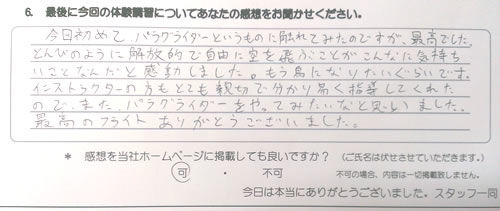 6. 最後に今回の体験講習についてあなたの感想をお聞かせください。
今日初めて パラグライダーというものに触れてみたのですが、最高でした。
とんびのように解放的で自由に空を飛ぶことがこんなに気持ち
いいことなんだと感動しました。もう鳥になりたいぐらいです。
インストラクターの方もとても親切で分かり易く指導してくれた
ので、また、パラグライダーをやってみたいなと思いました。
最高のフライト ありがとうございました。
* 感想を当社ホームページに掲載しても良いですか? (ご氏名は伏せさせていただきます。)
可 ・ 不可 不可の場合、内容は一切掲載致しません。
今日は本当にありがとうございました。スタッフ一同